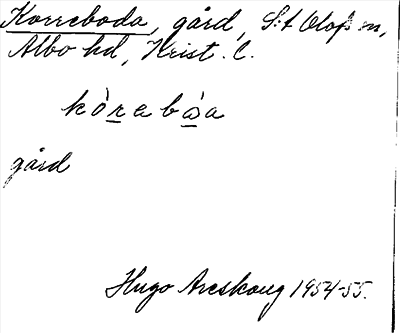 Korreboda, gård, S:t Olofs sn,
Albo hd, Krist. l.
kòrebòa
gård
Hugo Areskoug 1954-55.